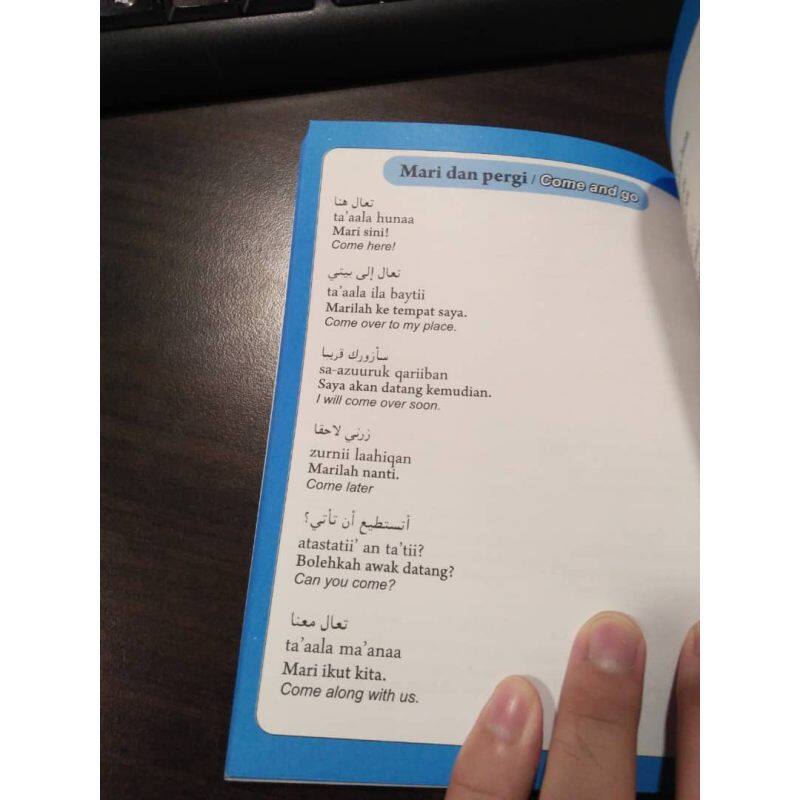 Mari dan pergi / Come and go
تعال هنا
ta'aala hunaa
Mari sini!
Come here!
تعال إلى بيتي
ta'aala ila baytii
Marilah ke tempat saya.
Come over to my place.
سأزورك قريبا
sa-azuuruk qariiban
Saya akan datang kemudian.
I will come over soon.
زرني لاحقا
zurnii laahiqan
Marilah nanti.
Come later
أتستطيع أن تأتي؟
atastatii' an ta'tii?
Bolehkah awak datang?
Can you come?
تعال معنا
ta'aala ma'anaa
Mari ikut kita.
Come along with us.